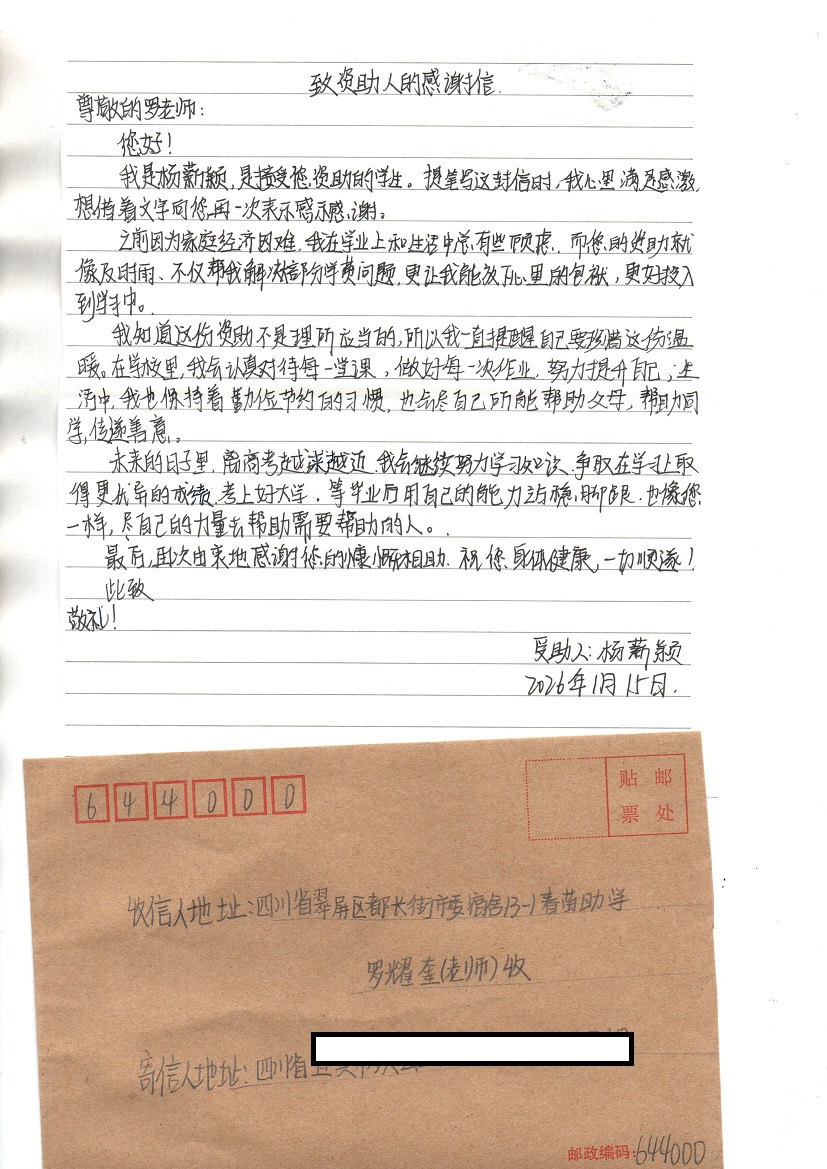 致资助人的感谢信.
尊敬的罗老师:
您好!
我是杨薪颖,是接受您资助的学生。提笔写这封信时,我心里满是感激,
想借着文字向您再一次表示感示感谢。
之前因为家庭经济困难,我在学业上和生活中总有些顾虑,而您的资助就
像及时雨、不仅帮我解决部分学费问题,更让我能放下心里的包袱,更好投入
到学习中。
我知道这份资助不是理所应当的,所以我一直提醒自己要珍惜这份温
暖。在学校里,我会认真对待每一堂课,做好每一次作业,努力提升自己,生
活中,我也保持着勤俭节约的习惯,也会尽自己所能帮助父母,帮助同
学,传递善意。
未来的日子里,离高考越来越近,我会继续努力学习知识,争取在学习上取
得更优异的成绩,考上好大学,等毕业后用自己的能力站稳脚跟,也像您
一样,尽自己的力量去帮助需要帮助的人。
最后,再次由衷地感谢您的慷慨相助.祝您身体健康,一切顺遂!
此致
敬礼!
受助人:杨薪颖
2026年1月15日.
644000
贴 邮
票 处
收信人地址:四川省翠屏区都长街市委宿舍13-1春苗助学
罗耀奎(老师)收
寄信人地址:四川省宜宾市
邮政编码:644000